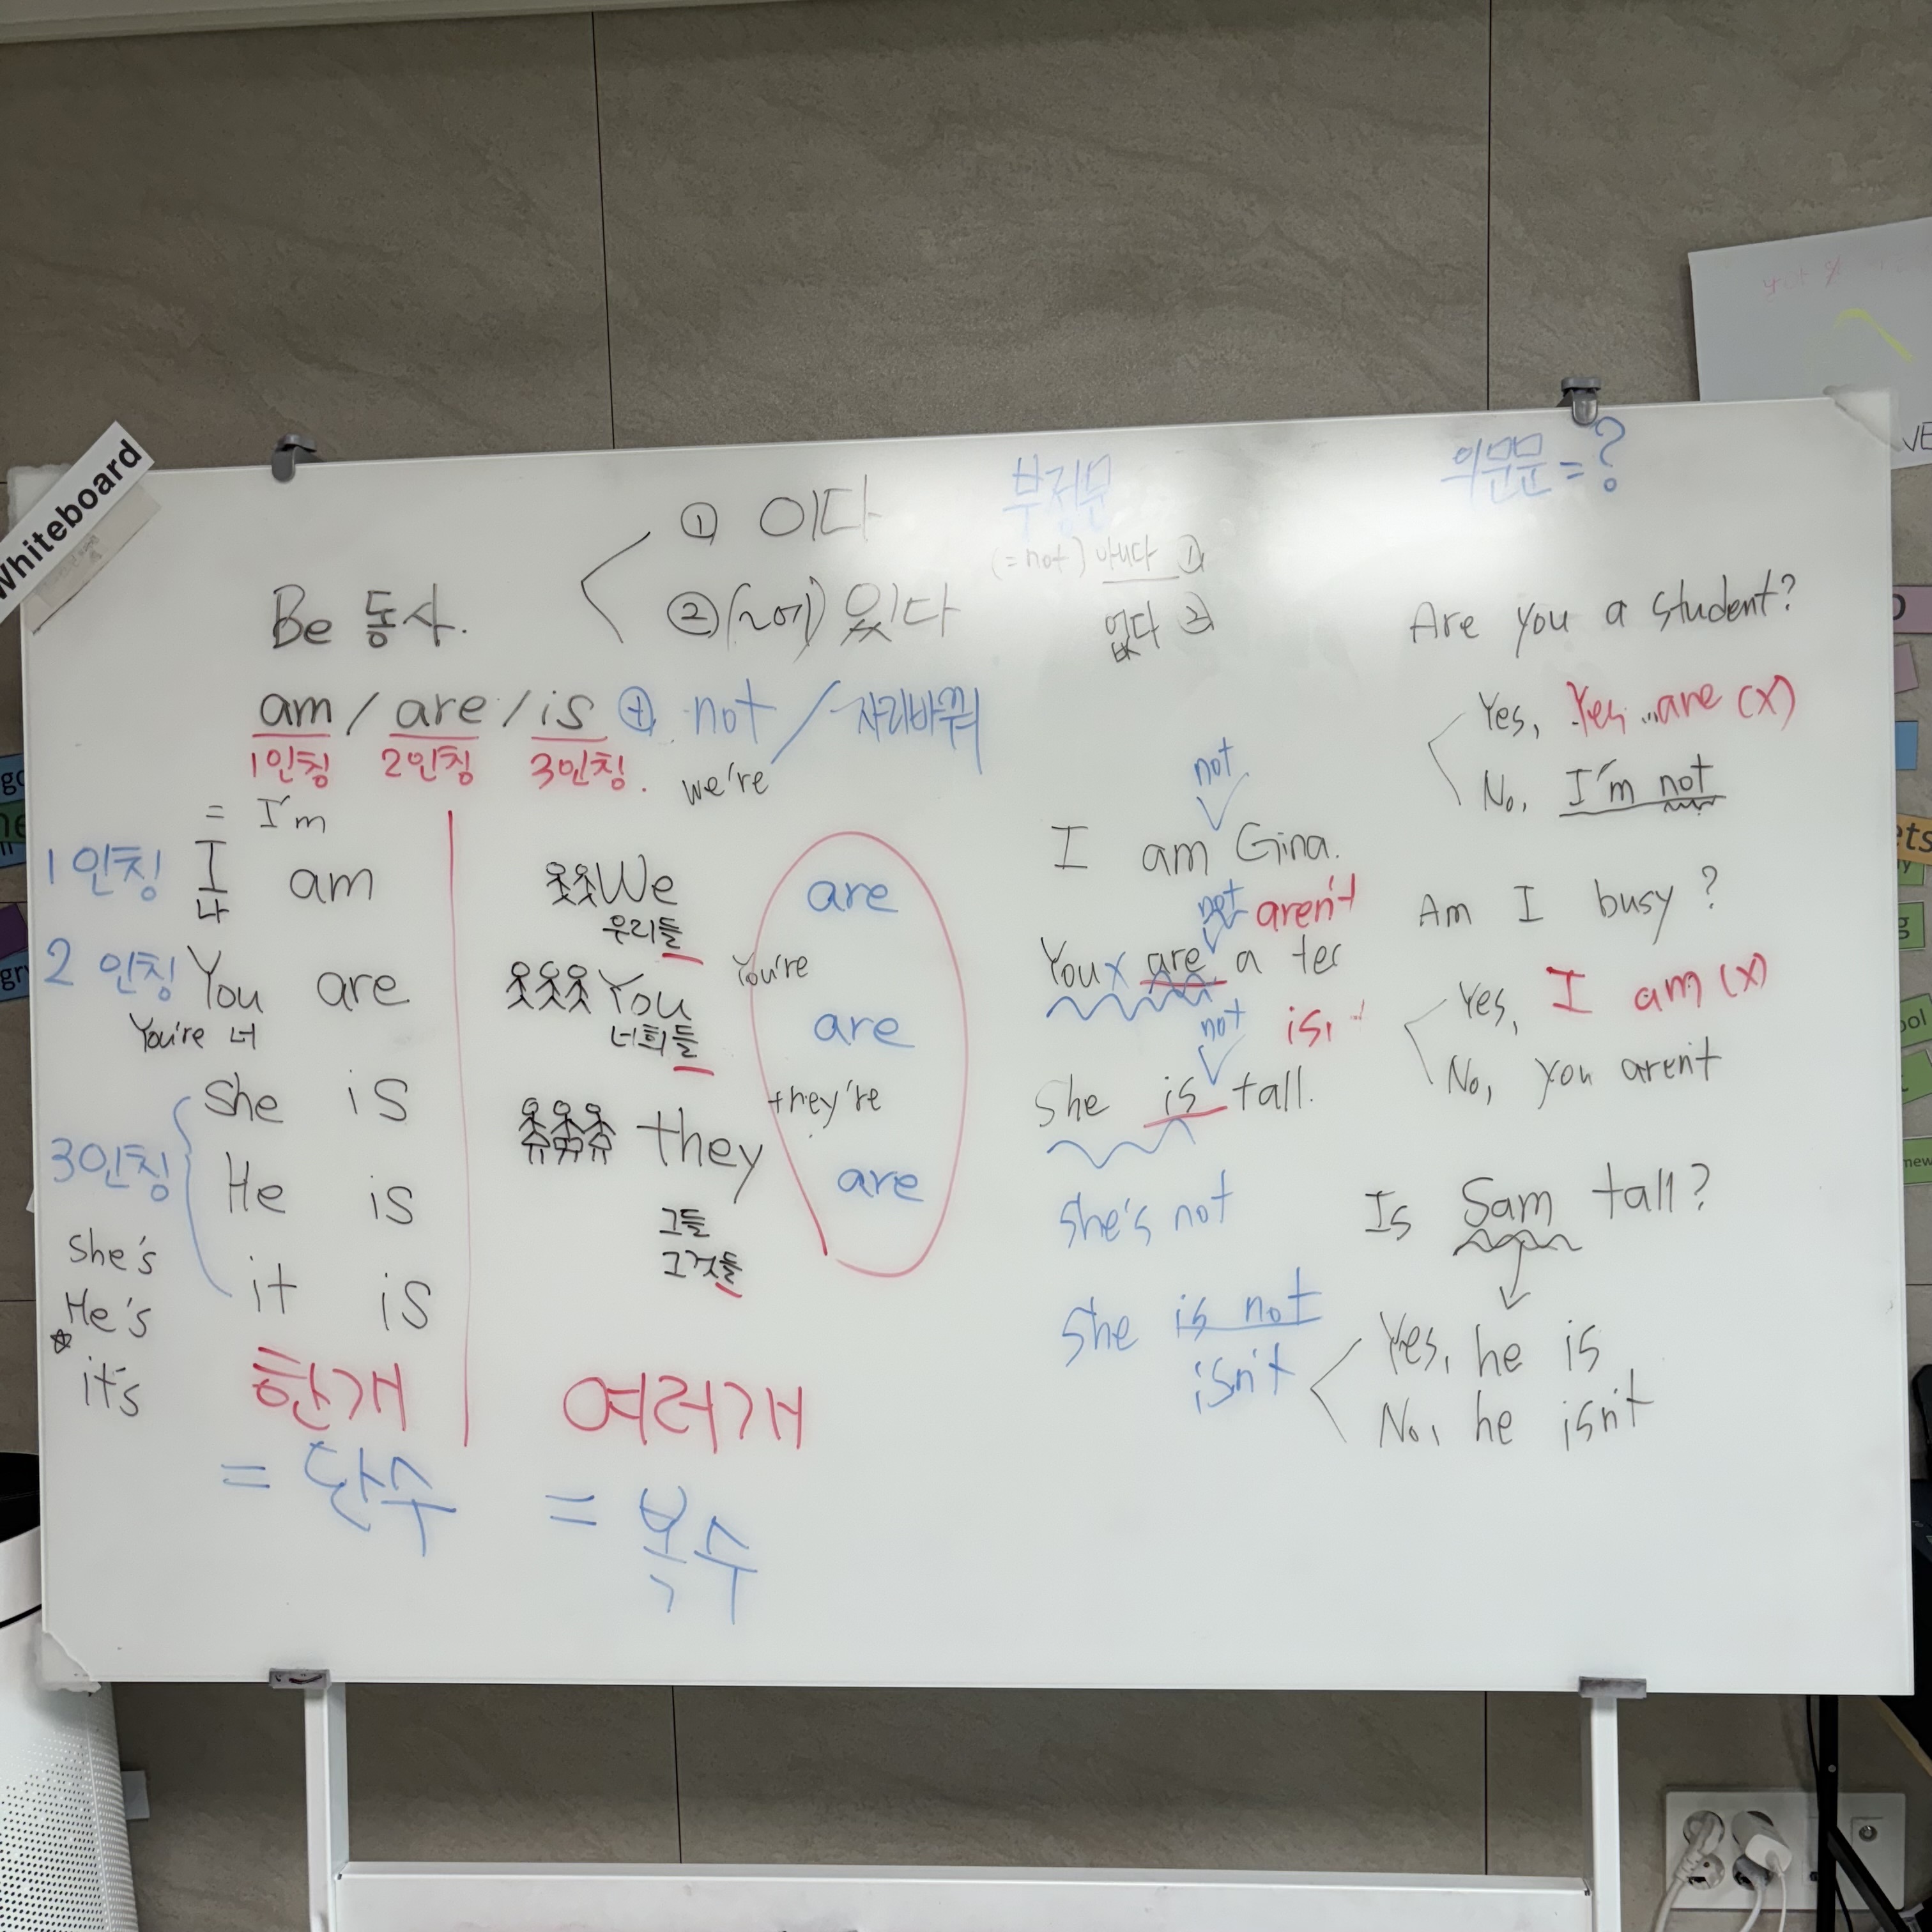 Whiteboard
Be 동사.
① 이다
② (~에) 있다
am / are / is ⊕ not / 자리바꿔
1인칭 2인칭 3인칭.
= I'm
1인칭 I am
나
2인칭 You are
You're 너
3인칭
she is
He is
it is
she's
He's
it's
한개
= 단수
we're
We are
우리들
You're
You are
너희들
they're
they are
그들
그것들
여러개
= 복수
부정문
(= not) 아니다 ①
없다 ②
not
I am Gina.
not aren't
You are a
not
she is tall.
she's not
she is not
isn't
의문문 = ?
Are you a student?
Yes, Yes .. are (x)
No, I'm not
Am I busy?
Yes, I am (x)
No, you aren't
Is Sam tall?
Yes, he is
No, he isn't